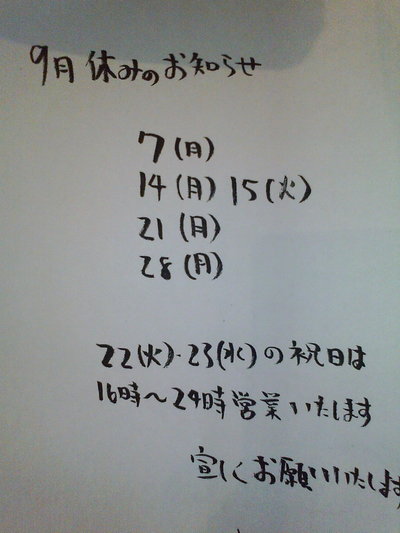 9月 休みのお知らせ
7(月)
14(月) 15(火)
21(月)
28(月)
22(火)・23(水)の祝日は
16時〜24時営業いたします
宜しくお願いいたします